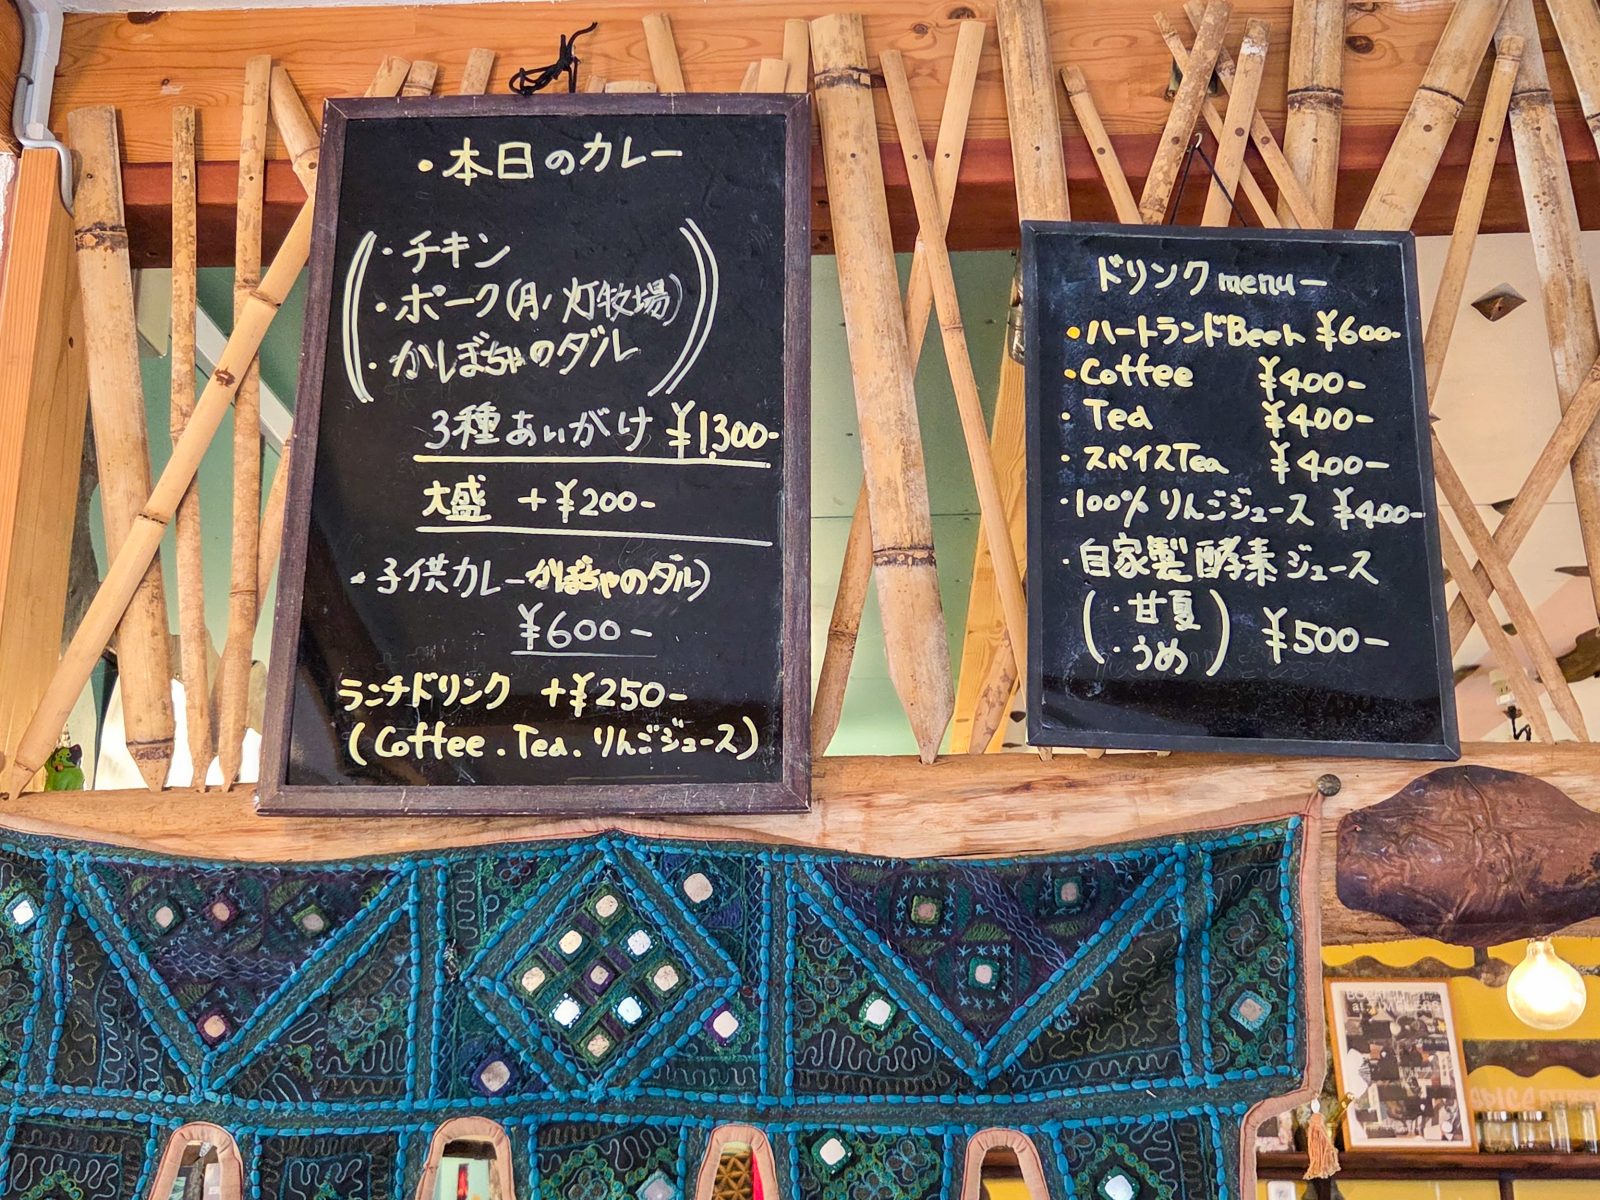 ・本日のカレー
・チキン
・ポーク(月ノ灯牧場)
・かぼちゃのダル
3種あいがけ ¥1,300-
大盛 +¥200-
・子供カレーかぼちゃのダル)
¥600-
ランチドリンク +¥250-
(Coffee.Tea.りんごジュース)
ドリンクmenu-
・ハートランドBeer ¥600-
・Coffee ¥400-
・Tea ¥400-
・スパイスTea ¥400-
・100% りんごジュース ¥400-
・自家製酵素ジュース
(・甘夏
・うめ) ¥500-